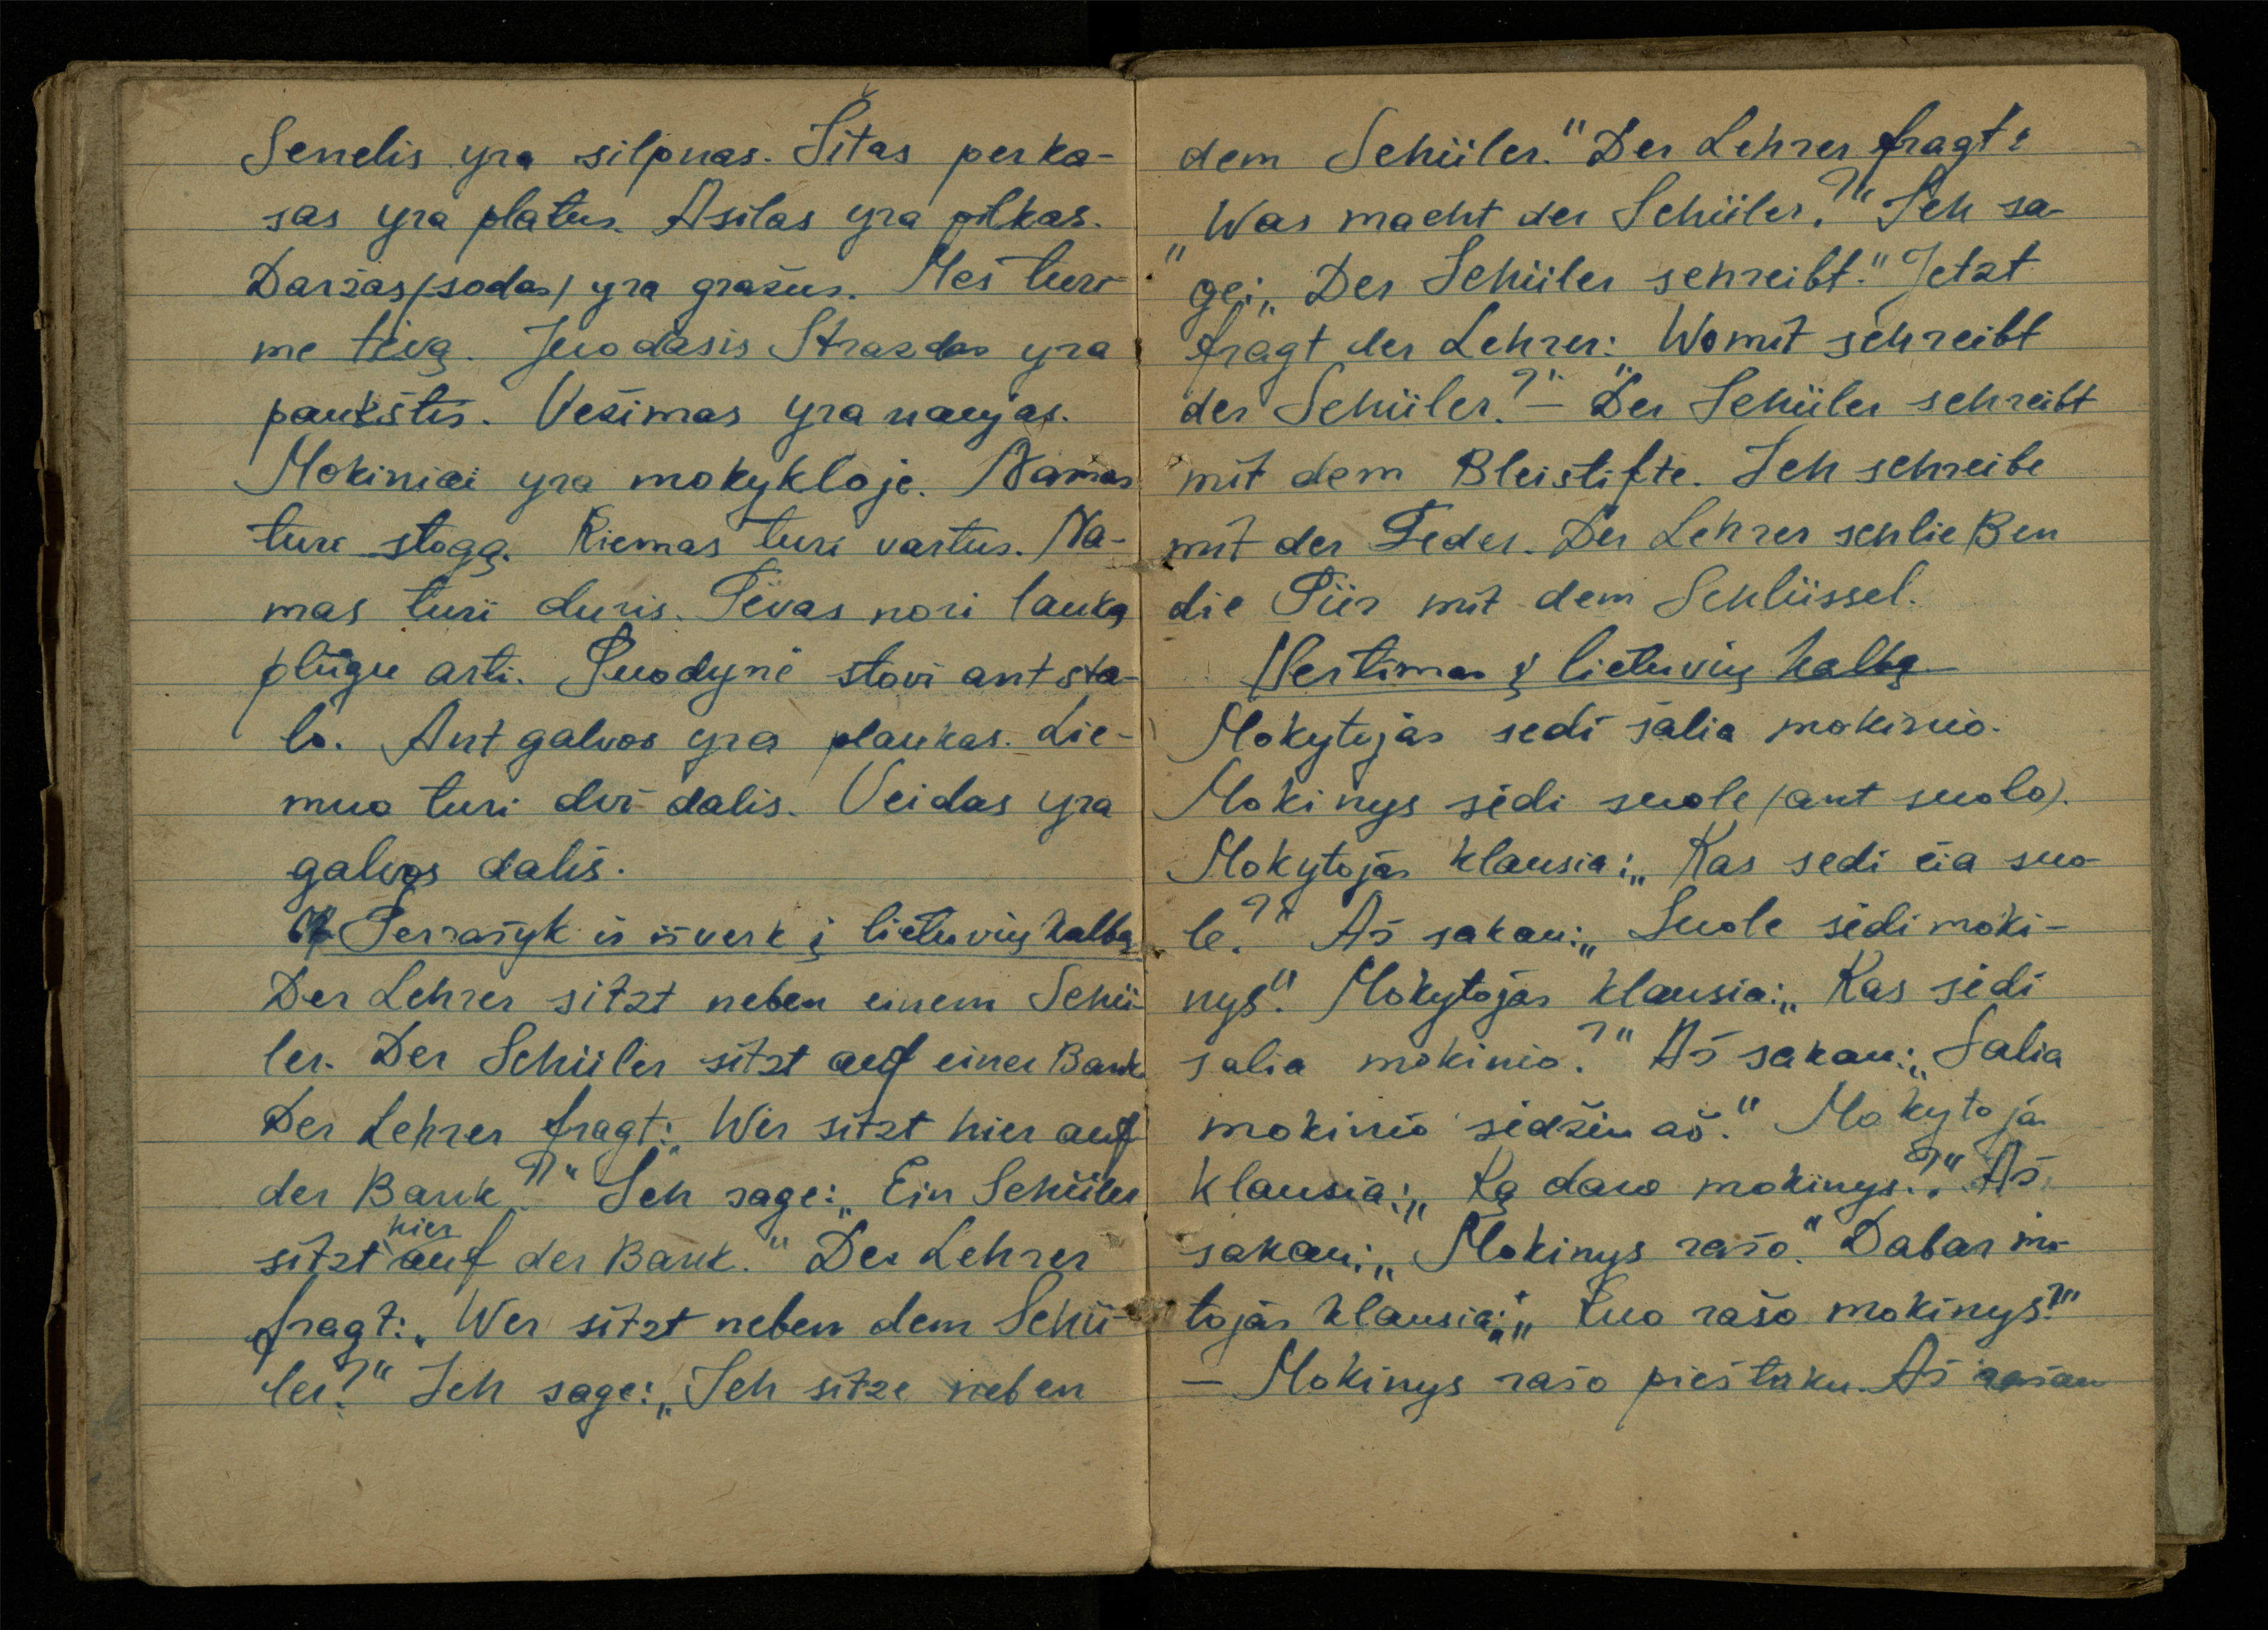 Senelis yra silpnas. Šitas perka-
sas yra platus. Asilas yra pilkas.
Daržas (sodas) yra gražus. Mes turi-
me tėvą. Juodasis Strazdas yra
paukštis. Vežimas yra naujas.
Mokiniai yra mokykloje. Namas
turi stogą. Kiemas turi vartus. Na-
mas turi duris. Tėvas nori lauką
plūgu arti. Puodynė stovi ant sta-
lo. Ant galvos yra plaukas. Lie-
muo turi dvi dalis. Veidas yra
galvos dalis.
Perrašyk ir išversk į lietuvių kalbą
Der Lehrer sitzt neben einem Schü-
ler. Der Schüler sitzt auf einer Bank
Der Lehrer fragt: „Wer sitzt hier auf
der Bank?" Ich sage: „Ein Schüler
sitzt hier auf der Bank." Der Lehrer
fragt: „Wer sitzt neben dem Schü-
ler?" Ich sage: „Ich sitze neben
dem Schüler." Der Lehrer fragt:
„Was macht der Schüler?" Ich sa-
ge: „Der Schüler schreibt." Jetzt
fragt der Lehrer: „Womit schreibt
der Schüler?" – Der Schüler schreibt
mit dem Bleistifte. Ich schreibe
mit der Feder. Der Lehrer schließen
die Tür mit dem Schlüssel.
Vertimas į lietuvių kalbą
Mokytojas sedi šalia mokinio.
Mokinys sėdi suole (ant suolo).
Mokytojas klausia: „Kas sedi čia suo-
le?" Aš sakau: „Suole sėdi moki-
nys". Mokytojas klausia: „Kas sėdi
šalia mokinio?" Aš sakau: „Šalia
mokinio sėdžiu aš." Mokytojas
klausia: „Ką daro mokinys?" Aš
sakau: „Mokinys rašo." Dabar mo-
tojas klausia: „Kuo rašo mokinys?"
– Mokinys rašo pieštuku. Aš rašau